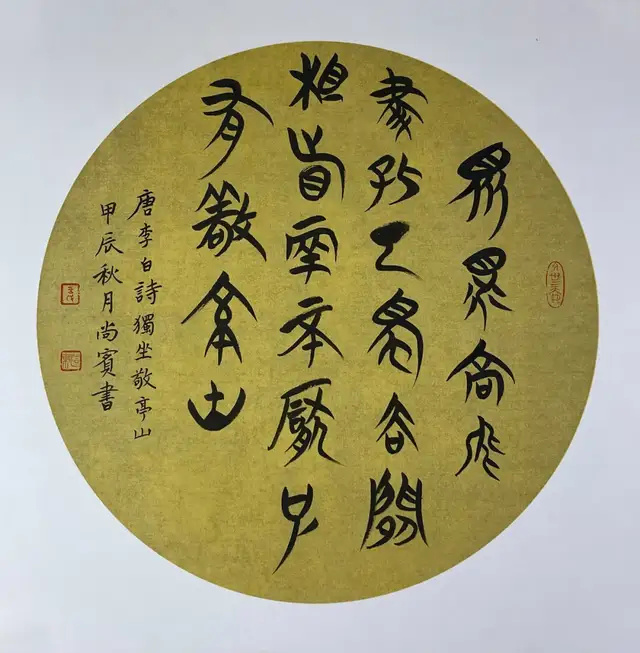 眾鳥高飛
盡孤云獨去閒
相看兩不厭只
有敬亭山
唐李白詩獨坐敬亭山
甲辰秋月尚賓書